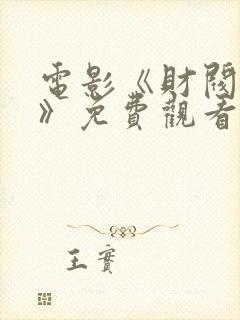 電影《財閥
》免費觀看
王實